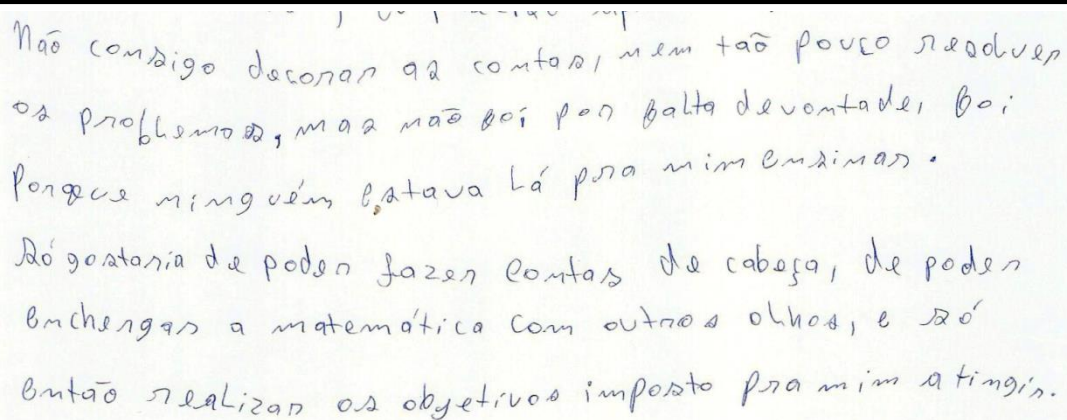 Não consigo decorar as contas, nem tão pouco resolver
os problhemas, mas não foi por falta de vontade, foi
porque ninguém estava lá pra mim ensinar.
Só gostaria de poder fazer contas de cabeça, de poder
enchergar a matemática com outros olhos, e só
então realizar os obgetivos imposto pra mim atingir.